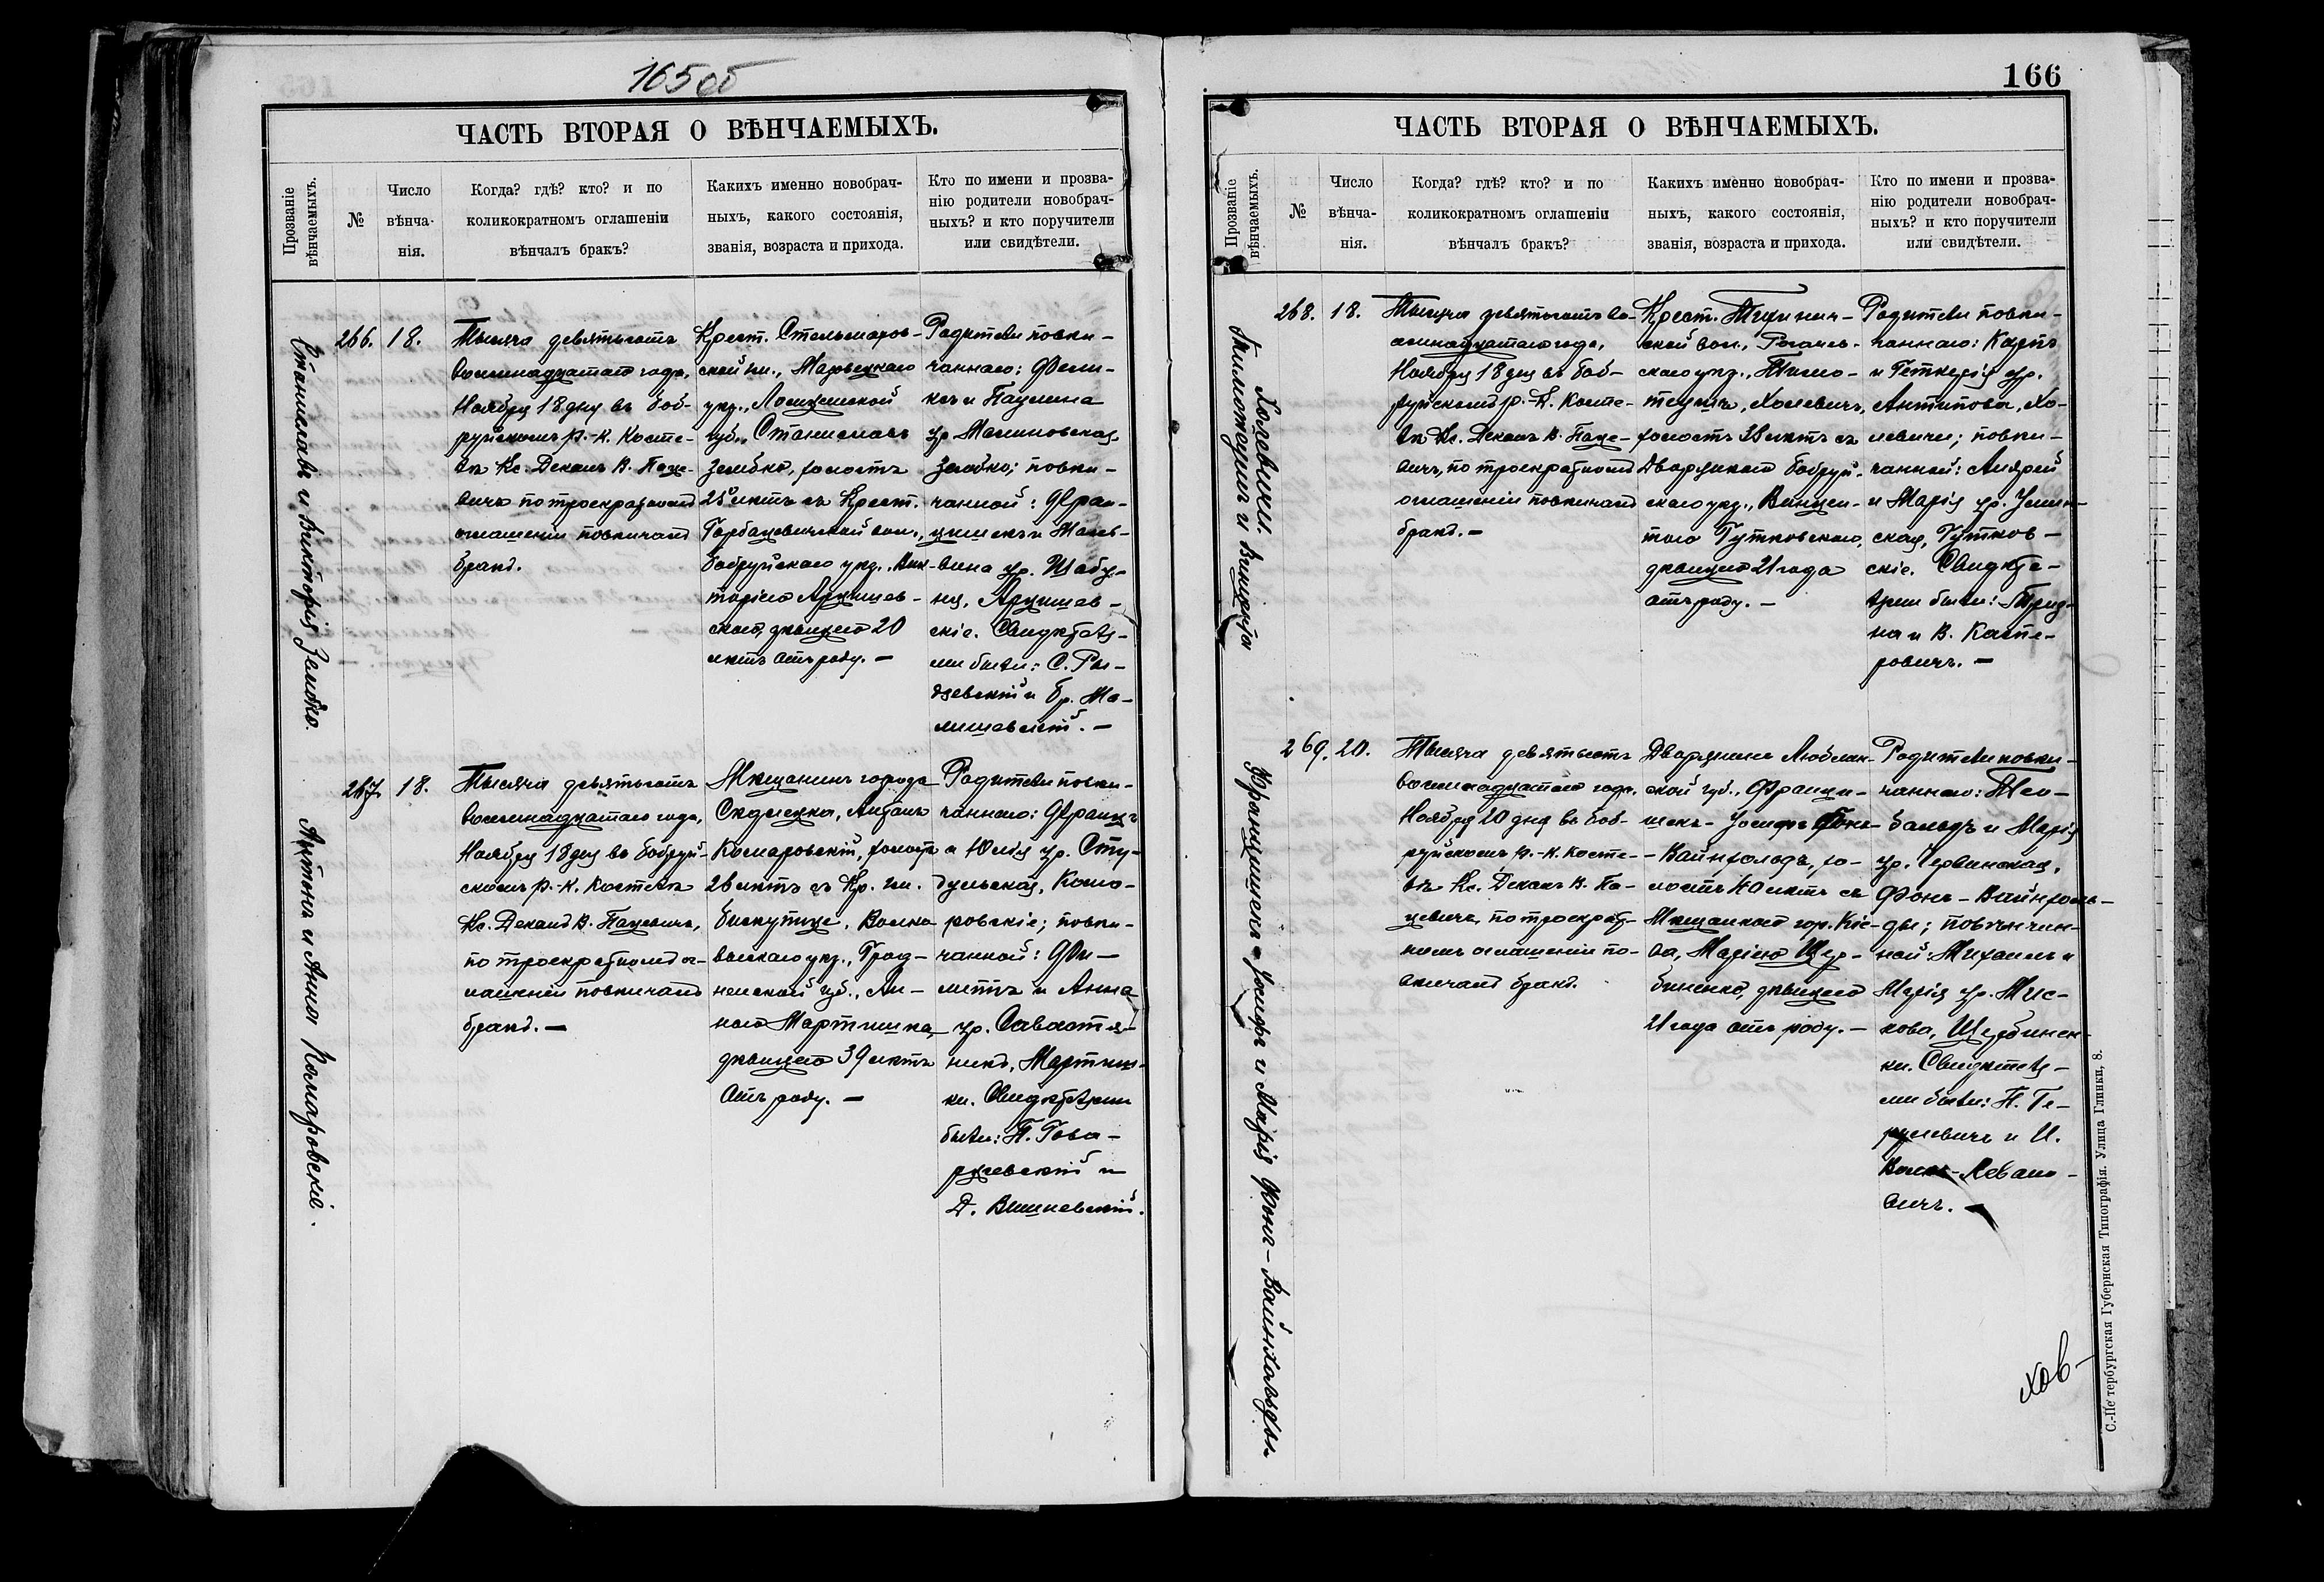 165 об
ЧАСТЬ ВТОРАЯ О ВѢНЧАЕМЫХЪ.
Прозваніе
вѣнчаемыхъ.
№
Число
вѣнча-
нія.
Когда? гдѣ? кто? и по
коликократномъ оглашеніи
вѣнчалъ бракъ?
Какихъ именно новобрач-
ныхъ, какого состоянія,
званія, возраста и прихода.
Кто по имени и прозва-
нію родители новобрач-
ныхъ? и кто поручители
или свидѣтели.
Станиславъ и Викторія Зембко.
266. 18.
Тысяча девятьсотъ
восемнадцатаго года,
Ноября 18 дня въ Боб-
руйскомъ р.-к. Косте-
лѣ Кс. Деканъ В. Паце-
вичъ по троекратномъ
оглашеніи повѣнчалъ
бракъ.
Крест.
Мазовецкаго
уѣз., Ломжинской
губ., Станиславъ
Зембко, холостъ
25 лѣтъ съ Крест.
Горбацевичской вол.,
Бобруйскаго уѣз., Вик-
торіею Ярушев-
скою, дѣвицею 20
лѣтъ отъ роду. —
Родители повѣн-
чаннаго: Фели-
ксъ и Паулина
ур. Малиновская,
Зембко; повѣн-
чанной: Фран-
цишекъ и Маль-
вина ур. Шабу-
ня, Ярушев-
скіе. Свидѣтеля-
ми были: С. Ры-
дзевскій и Бр. Ма-
лишевскій. —
Антонъ и Анна Комаровскіе.
267. 18.
Тысяча девятьсотъ
восемнадцатаго года,
Ноября 18 дня въ Бобруй-
скомъ р.-к. Костелѣ
Кс. Деканъ В. Пацевичъ,
по троекратномъ ог-
лашеніи повѣнчалъ
бракъ. —
Мѣщанинъ города
Сѣдлецка, Антонъ
Комаровскій, холостъ
26 лѣтъ съ Кр. гм.
Бискупице, Волко-
выскаго уѣз., Грод-
ненской губ., Ан-
ною Мартишко,
дѣвицею 39 лѣтъ
отъ роду. —
Родители повѣн-
чаннаго: Францъ
и Юлія ур. Сту-
дульская, Кома-
ровскіе; повѣн-
чанной: Фи-
липпъ и Анна
ур. Саваст-
Мартиш-
ки. Свидѣтелями
были: П. Гова-
и
Д. Вишневскій.
166
ЧАСТЬ ВТОРАЯ О ВѢНЧАЕМЫХЪ.
Прозваніе
вѣнчаемыхъ.
№
Число
вѣнча-
нія.
Когда? гдѣ? кто? и по
коликократномъ оглашеніи
вѣнчалъ бракъ?
Какихъ именно новобрач-
ныхъ, какого состоянія,
званія, возраста и прихода.
Кто по имени и прозва-
нію родители новобрач-
ныхъ? и кто поручители
или свидѣтели.
Холевичи.
268. 18.
Тысяча девятьсотъ во-
семнадцатаго года,
Ноября 18 дня въ Боб-
руйскомъ р.-к. Косте-
лѣ Кс. Деканъ В. Паце-
вичъ, по троекратномъ
оглашеніи повѣнчалъ
бракъ. —
Крест.
ской вол., Рогачев-
скаго уѣз., Тимо-
Холевичъ,
холостъ 38 лѣтъ съ
Дворянкою Бобруй-
скаго уѣз., Винцен-
тою Гутковскою,
дѣвицею 21 года
отъ роду. —
Родители повѣн-
чаннаго: Карпъ
и ур.
Антипова, Хо-
левичи; повѣн-
чанной: Андрей
и Марія ур. Услин-
ская, Гутков-
скіе. Свидѣте-
лями были:
и В. Каспе-
ровичъ. —
Францишекъ-Іосифъ и Марія Фонъ-Вайнхольды.
269. 20.
Тысяча девятьсотъ
восемнадцатаго года,
Ноября 20 дня въ Боб-
руйскомъ р.-к. Косте-
лѣ Кс. Деканъ В. Па-
цевичъ, по троекрат-
номъ оглашеніи по-
вѣнчалъ бракъ.
Дворянинъ Люблин-
ской губ., Франци-
шекъ-Іосифъ Фонъ-
-Вайнхольдъ, хо-
лостъ 40 лѣтъ съ
Мѣщанкою гор. Кіе-
ва, Маріею Щер-
биненко, дѣвицею
21 года отъ роду. —
Родители повѣн-
чаннаго: Тео-
бальдъ и Марія
ур. Червинская,
Фонъ-Вайнхоль-
ды; повѣнчан-
ной: Михаилъ и
Марія ур. Мис-
кова, Щербинен-
ки. Свидѣтеля-
ми были: П. Ге-
и И.
Волкъ-Леван-
вичъ. —
С.-Петербургская Губернская Типографія. Улица Глинки, 8.